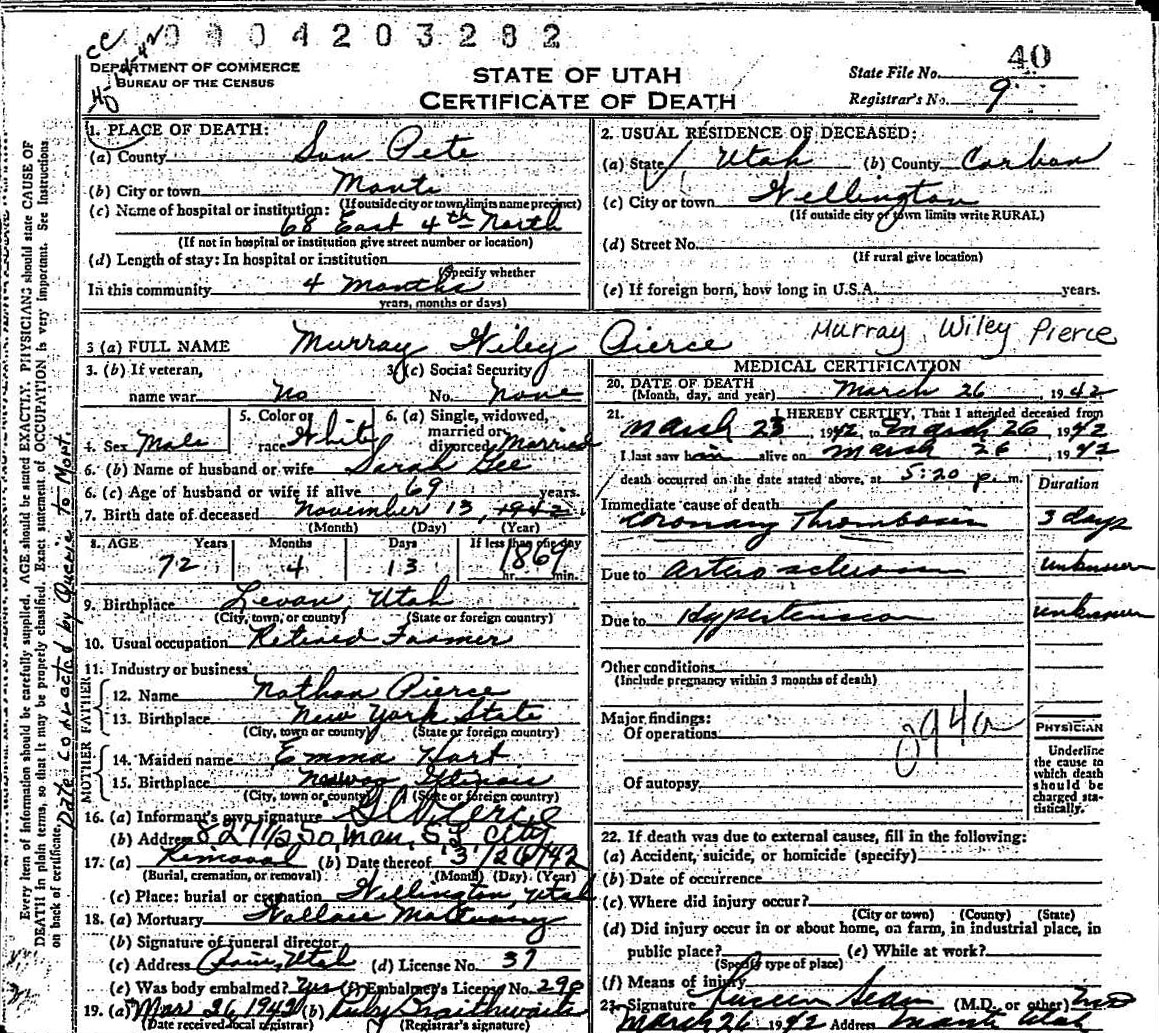 0004203282
CC
DEPARTMENT OF COMMERCE
BUREAU OF THE CENSUS
STATE OF UTAH
CERTIFICATE OF DEATH
State File No. 40
Registrar's No. 9
1. PLACE OF DEATH:
(a) County San Pete
(b) City or town Manti
(If outside city or town limits name precinct)
(c) Name of hospital or institution:
68 East 4th North
(If not in hospital or institution give street number or location)
(d) Length of stay: In hospital or institution
(Specify whether
In this community 4 Months
years, months or days)
2. USUAL RESIDENCE OF DECEASED:
(a) State Utah (b) County Carbon
(c) City or town Wellington
(If outside city or town limits write RURAL)
(d) Street No.
(If rural give location)
(e) If foreign born, how long in U.S.A. years.
3 (a) FULL NAME Murray Wiley Pierce Murray Wiley Pierce
3. (b) If veteran,
name war. No
3. (c) Social Security
No. None
4. Sex Male
5. Color or
race White
6. (a) Single, widowed,
married or
divorced Married
6. (b) Name of husband or wife Sarah Gee
6. (c) Age of husband or wife if alive 69 years.
7. Birth date of deceased November 13, 1942
(Month) (Day) (Year)
1869
8. AGE Years Months Days If less than one day
72 4 13 hr. min.
9. Birthplace Levan, Utah
(City, town, or county) (State or foreign country)
10. Usual occupation Retired Farmer
11. Industry or business
FATHER
12. Name Nathan Pierce
13. Birthplace New York State
(City, town or county) (State or foreign country)
MOTHER
14. Maiden name Emma Hart
15. Birthplace Illinois
(City, town or county) (State or foreign country)
16. (a) Informant's own signature
(b) Address 827 1/2 So Main, S L City
17. (a) Removal (b) Date thereof 3/26/42
(Burial, cremation, or removal) (Month) (Day) (Year)
(c) Place: burial or cremation Wellington, Utah
18. (a) Mortuary Wallace
(b) Signature of funeral director
(c) Address Price, Utah (d) License No. 37
(e) Was body embalmed? Yes (f) Embalmer's License No. 298
19. (a) Mar 26 1942 (b) Ruby Braithwaite
(Date received local registrar) (Registrar's signature)
MEDICAL CERTIFICATION
20. DATE OF DEATH
(Month, day, and year) March 26, 1942
21. I HEREBY CERTIFY, That I attended deceased from
March 23, 1942, to March 26, 1942
I last saw him alive on March 26, 1942
death occurred on the date stated above, at 5:20 p. m.
Duration
Immediate cause of death
Coronary Thrombosis 3 days
Due to unknown
Due to Hypertension unknown
Other conditions
(Include pregnancy within 3 months of death)
Major findings:
Of operations
094a
Of autopsy
PHYSICIAN
Underline
the cause to
which death
should be
charged sta-
tistically.
22. If death was due to external causes, fill in the following:
(a) Accident, suicide, or homicide (specify)
(b) Date of occurrence
(c) Where did injury occur?
(City or town) (County) (State)
(d) Did injury occur in or about home, on farm, in industrial place, in
public place? (e) While at work?
(Specify type of place)
(f) Means of injury
23. Signature (M.D. or other) MD
March 26 1942 Address Manti Utah
Every item of information should be carefully supplied. AGE should be stated EXACTLY. PHYSICIANS should state CAUSE OF
DEATH in plain terms, so that it may be properly classified. Exact statement of OCCUPATION is very important. See Instructions
on back of certificate.
Date Corrected by Query to Mort.